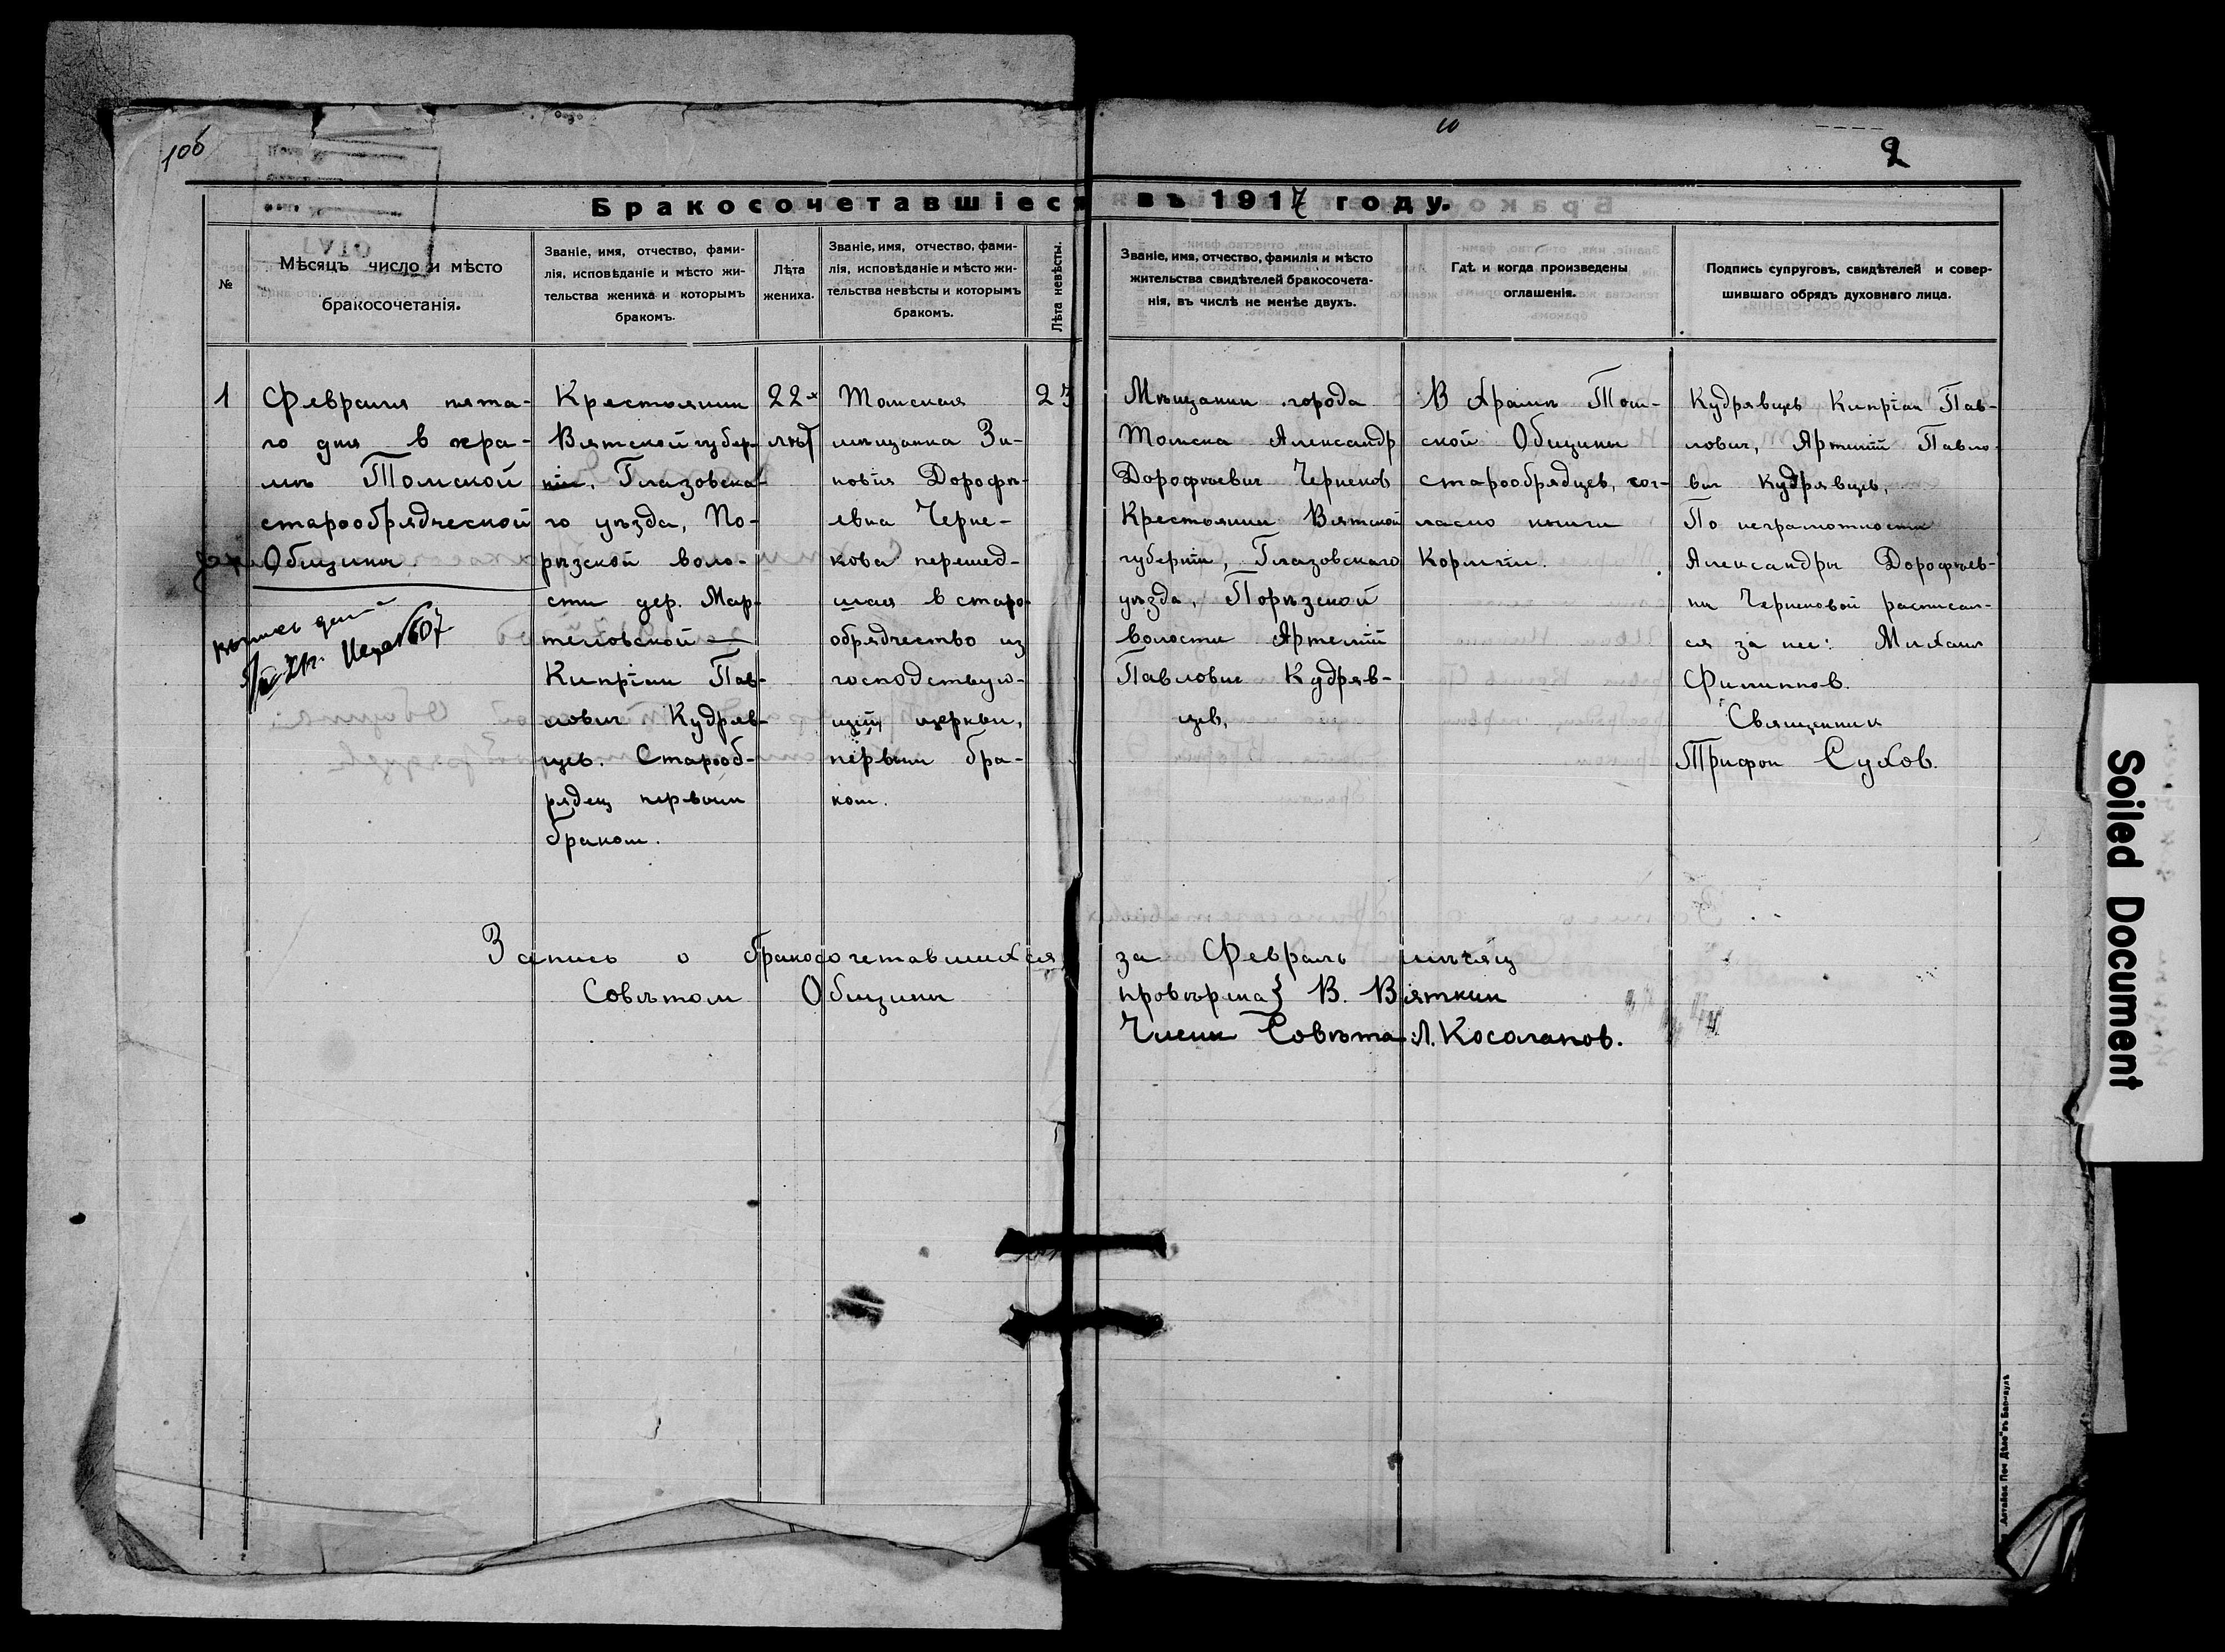 10б
10
2
Бракосочетавшіеся въ 1917 году.
№
Мѣсяцъ число и мѣсто
бракосочетанія.
Званіе, имя, отчество, фами-
лія, исповѣданіе и мѣсто жи-
тельства жениха и которымъ
бракомъ.
Лѣта
жениха.
Званіе, имя, отчество, фами-
лія, исповѣданіе и мѣсто жи-
тельства невѣсты и которымъ
бракомъ.
Лѣта невѣсты.
Званіе, имя, отчество, фамилія и мѣсто
жительства свидѣтелей бракосочета-
нія, въ числѣ не менѣе двухъ.
Гдѣ и когда произведены
оглашенія.
Подпись супруговъ, свидѣтелей и совер-
шившаго обрядъ духовнаго лица.
1
Февраля пята-
го дня в хра-
мѣ Томской
старообрядческой
Общины.
Крестьянин
Вятской губер-
ніи, Глазовска-
го уѣзда, По-
рѣзской воло-
сти дер. Мар-
теловской
Кипріан Пав-
лович Кудряв-
цев. Старооб-
рядец первым
браком.
22-х
лѣт
Томская
мѣщанка Зи-
новія Дорофѣ-
евна Черне-
кова перешед-
шая в старо-
обрядчество из
господствую-
щей церкви,
первым бра-
ком.
23
Мѣщанин города
Томска Александр
Дорофѣевич Чернеков
Крестьянин Вятской
губерніи, Глазовскаго
уѣзда, Порѣзской
волости Артемій
Павлович Кудряв-
цев,
В Храмѣ Том-
ской Общины
старообрядцев, сог-
ласно книги
Кормчіи.
Кудрявцев Кипріан Пав-
лович, Артемій Павло-
вич Кудрявцев,
По неграмотности
Александры Дорофѣев-
ны Чернековой расписал-
ся за нее: Михаил
Филиппов.
Священник
Трифон Сухов.
Запись о бракосочетавшихся за Февраль мѣсяц
Совѣтом Общины провѣрена} В. Вяткин
Члены Совѣта Л. Косолапов.
Soiled Document